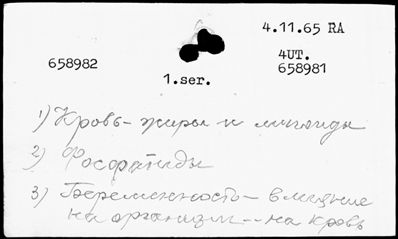 4.11.65 RA
658982
4UT.
658981
1.ser.
1) Кровь - жиры и липоиды
2) Фосфатиды
3) Беременность - влияние
на организм -- на кровь